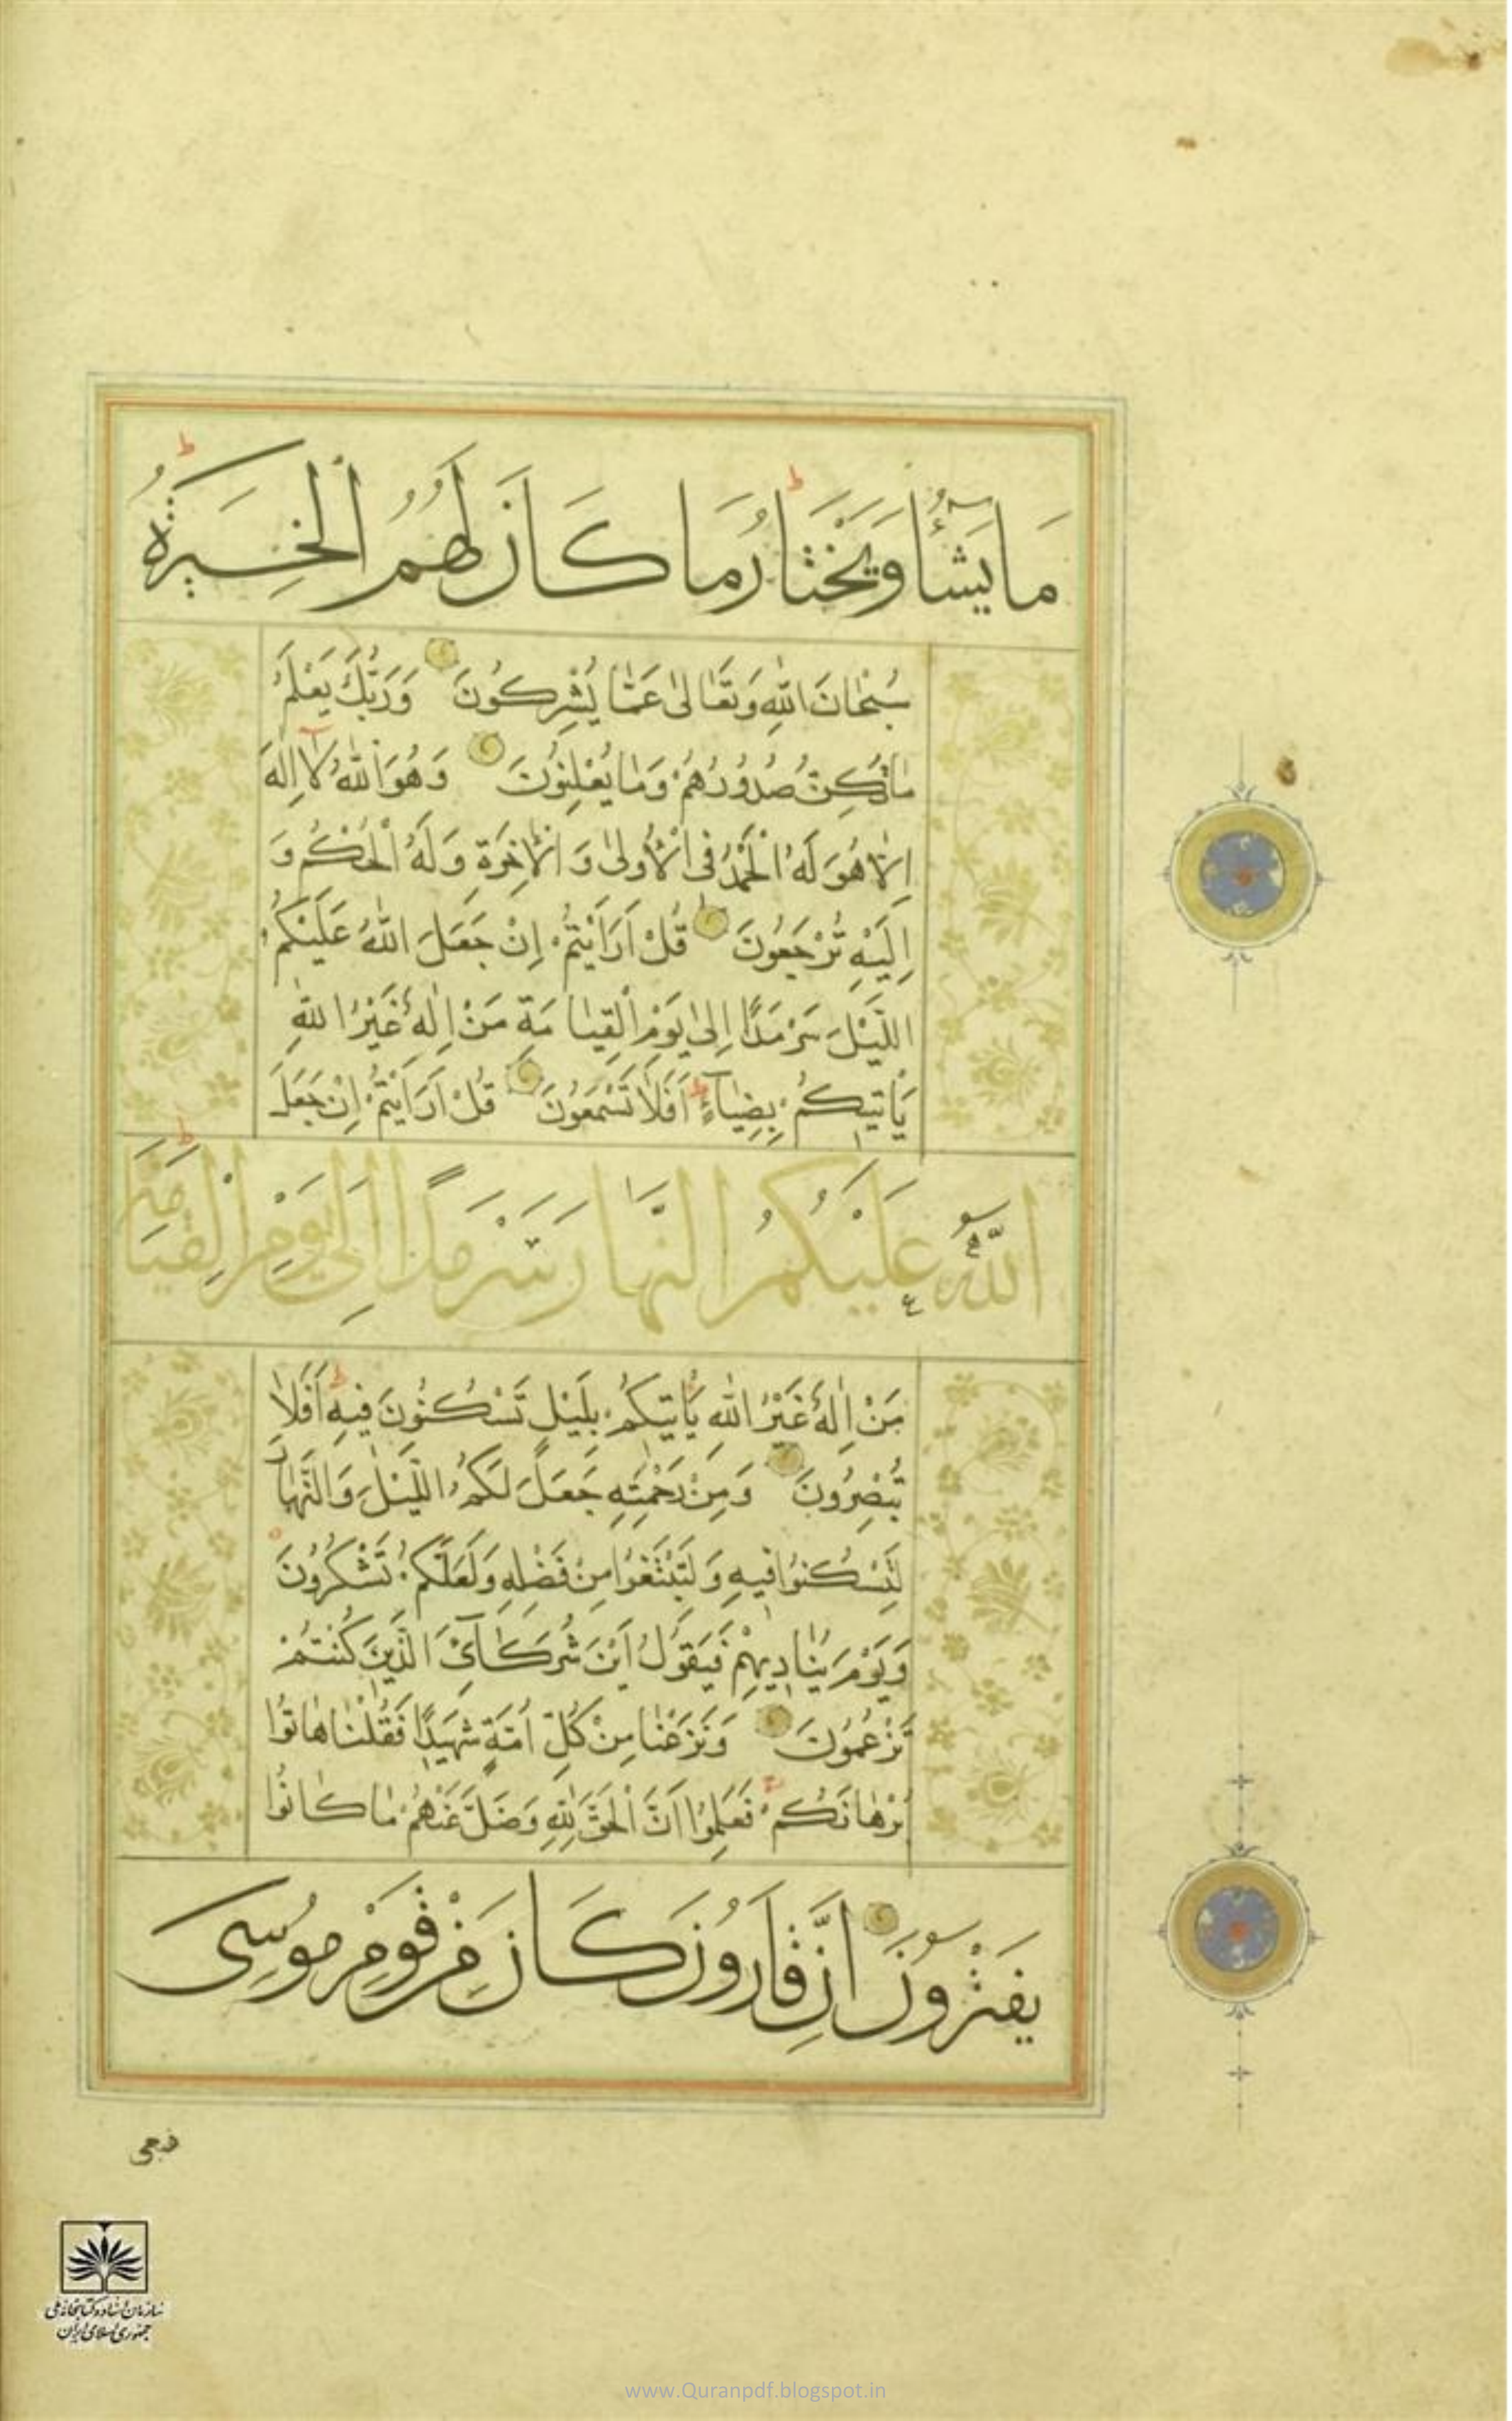 مَا يَشَاءُ وَيَخْتَارُ مَا كَانَ لَهُمُ الْخِيَرَةُ
سُبْحَانَ اللّٰهِ وَتَعَالىٰ عَمَّا يُشْرِكُونَ وَرَبُّكَ يَعْلَمُ
مَا تُكِنُّ صُدُورُهُمْ وَمَا يُعْلِنُونَ وَهُوَ اللّٰهُ لَا اِلٰهَ
اِلَّا هُوَ لَهُ الْحَمْدُ فِى الْاُولىٰ وَالْاٰخِرَةِ وَلَهُ الْحُكْمُ وَ
اِلَيْهِ تُرْجَعُونَ قُلْ اَرَاَيْتُمْ اِنْ جَعَلَ اللّٰهُ عَلَيْكُمُ
اللَّيْلَ سَرْمَدًا اِلىٰ يَوْمِ الْقِيَامَةِ مَنْ اِلٰهٌ غَيْرُ اللّٰهِ
يَأْتِيكُمْ بِضِيَآءٍ اَفَلَا تَسْمَعُونَ قُلْ اَرَاَيْتُمْ اِنْ جَعَلَ
اللّٰهُ عَلَيْكُمُ النَّهَارَ سَرْمَدًا اِلىٰ يَوْمِ الْقِيَامَةِ
مَنْ اِلٰهٌ غَيْرُ اللّٰهِ يَأْتِيكُمْ بِلَيْلٍ تَسْكُنُونَ فِيهِ اَفَلَا
تُبْصِرُونَ وَمِنْ رَحْمَتِهِ جَعَلَ لَكُمُ اللَّيْلَ وَالنَّهَارَ
لِتَسْكُنُوا فِيهِ وَلِتَبْتَغُوا مِنْ فَضْلِهِ وَلَعَلَّكُمْ تَشْكُرُونَ
وَيَوْمَ يُنَادِيهِمْ فَيَقُولُ اَيْنَ شُرَكَآئِىَ الَّذِينَ كُنْتُمْ
تَزْعُمُونَ وَنَزَعْنَا مِنْ كُلِّ اُمَّةٍ شَهِيدًا فَقُلْنَا هَاتُوا
بُرْهَانَكُمْ فَعَلِمُوا اَنَّ الْحَقَّ لِلّٰهِ وَضَلَّ عَنْهُمْ مَا كَانُوا
يَفْتَرُونَ اِنَّ قَارُونَ كَانَ مِنْ قَوْمِ مُوسىٰ
سازمان اسناد و کتابخانه ملی
جمهوری اسلامی ایران
www.Quranpdf.blogspot.in